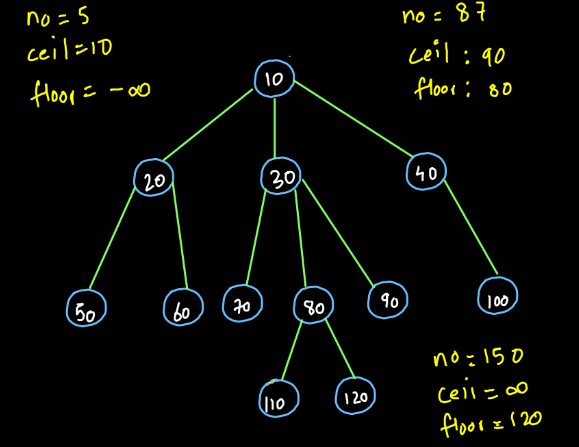 no = 5
ceil = 10
floor = -∞
no = 87
ceil : 90
floor : 80
10
20
30
40
50
60
70
80
90
100
110
120
no = 150
ceil = ∞
floor = 120